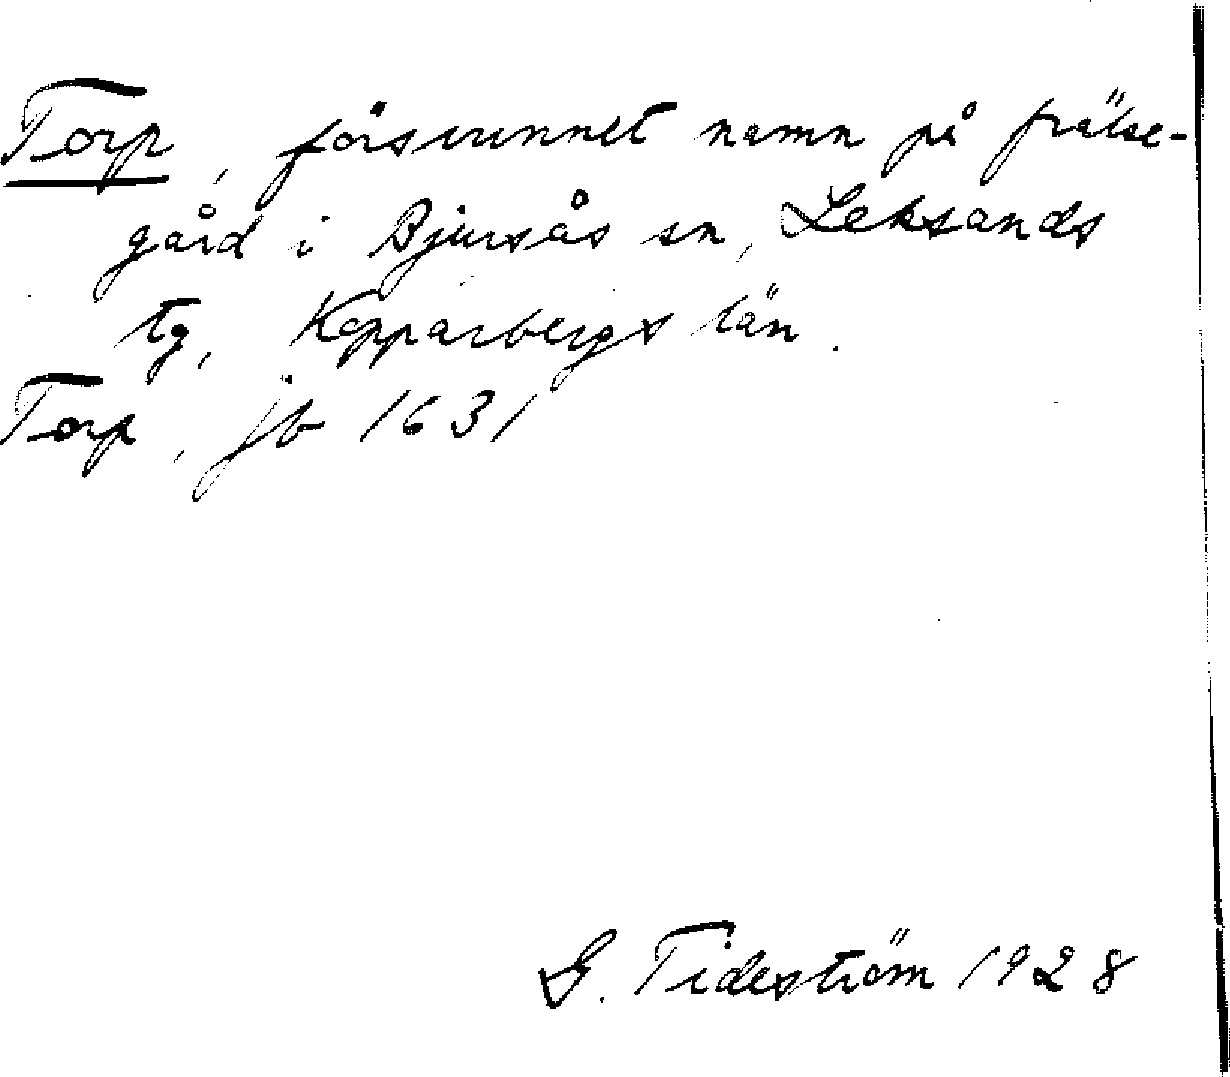 Torp, försvunnet namn på frälse-
gård i Bjursås sn, Leksands
tg, Kopparbergs län.
Torp, jb 1631
G. Tideström 1928